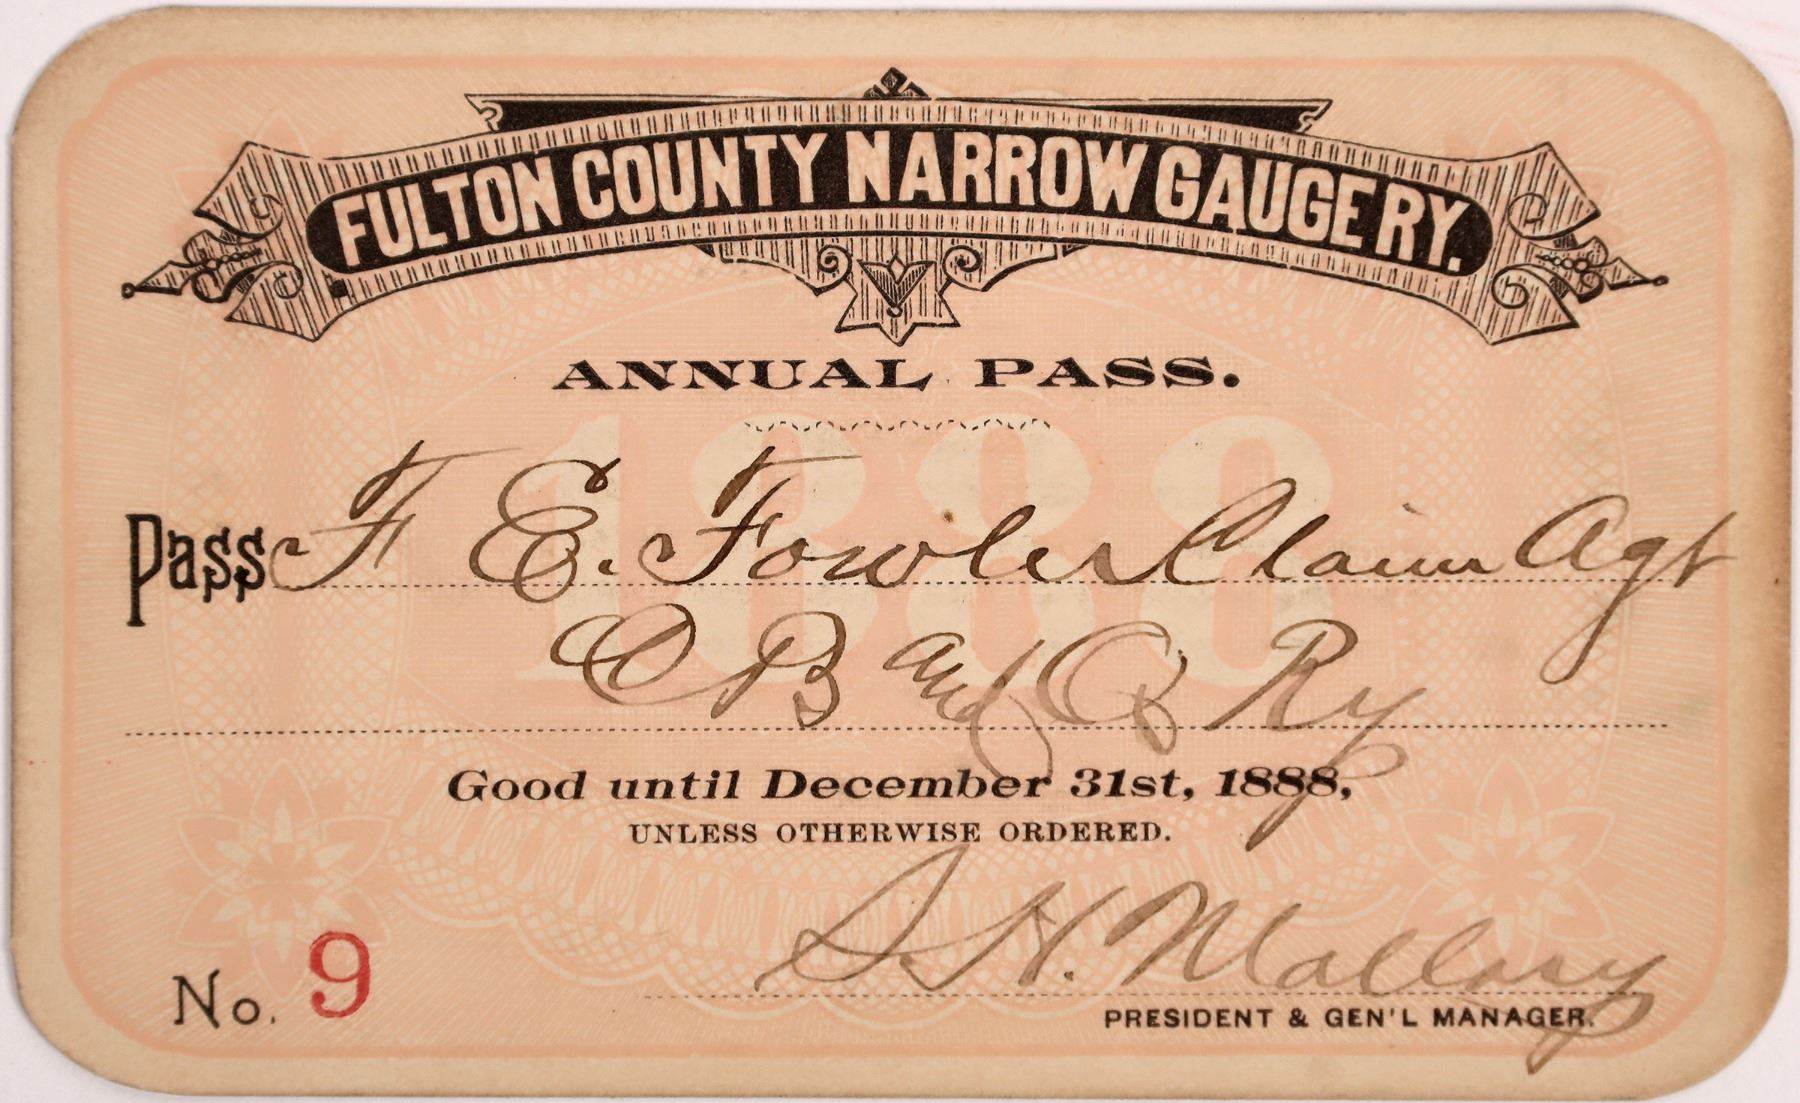 FULTON COUNTY NARROW GAUGE RY.
ANNUAL PASS.
1888
Pass F E. Fowler Claim Agt
C B and Q Ry
Good until December 31st, 1888,
UNLESS OTHERWISE ORDERED.
No. 9
S. H. Mallory
PRESIDENT & GEN'L MANAGER.